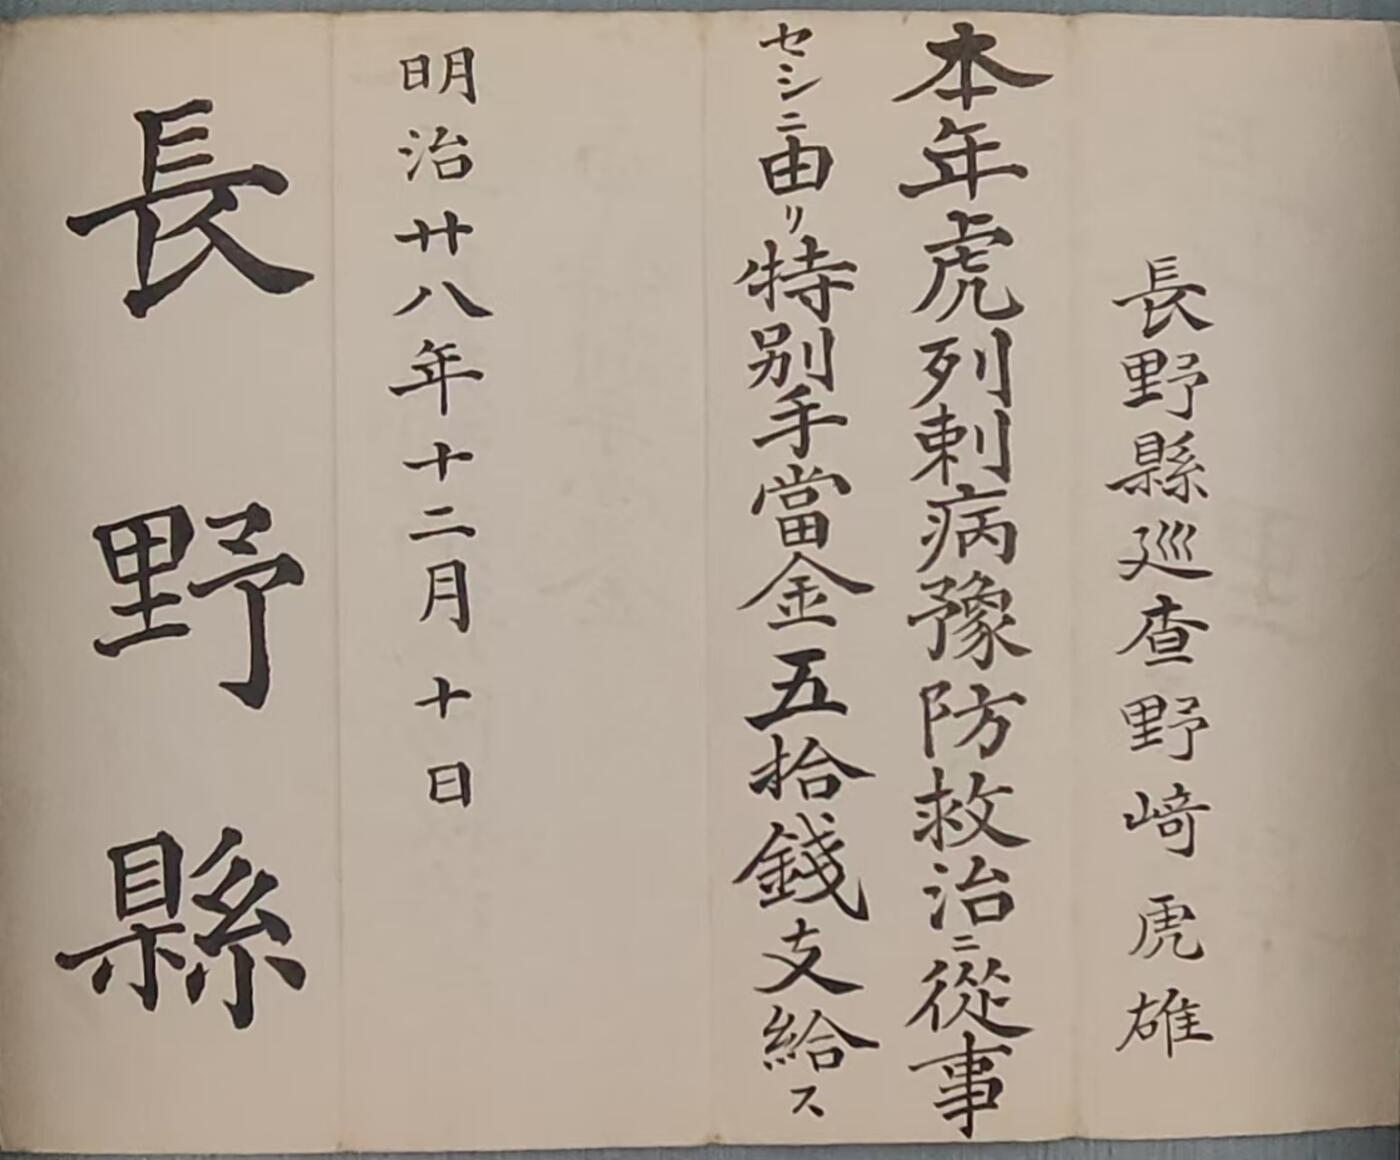 長野縣巡査野﨑虎雄
本年虎列刺病豫防救治ニ從事
セシニ由リ特別手當金五拾錢支給ス
明治廿八年十二月十日
長野縣